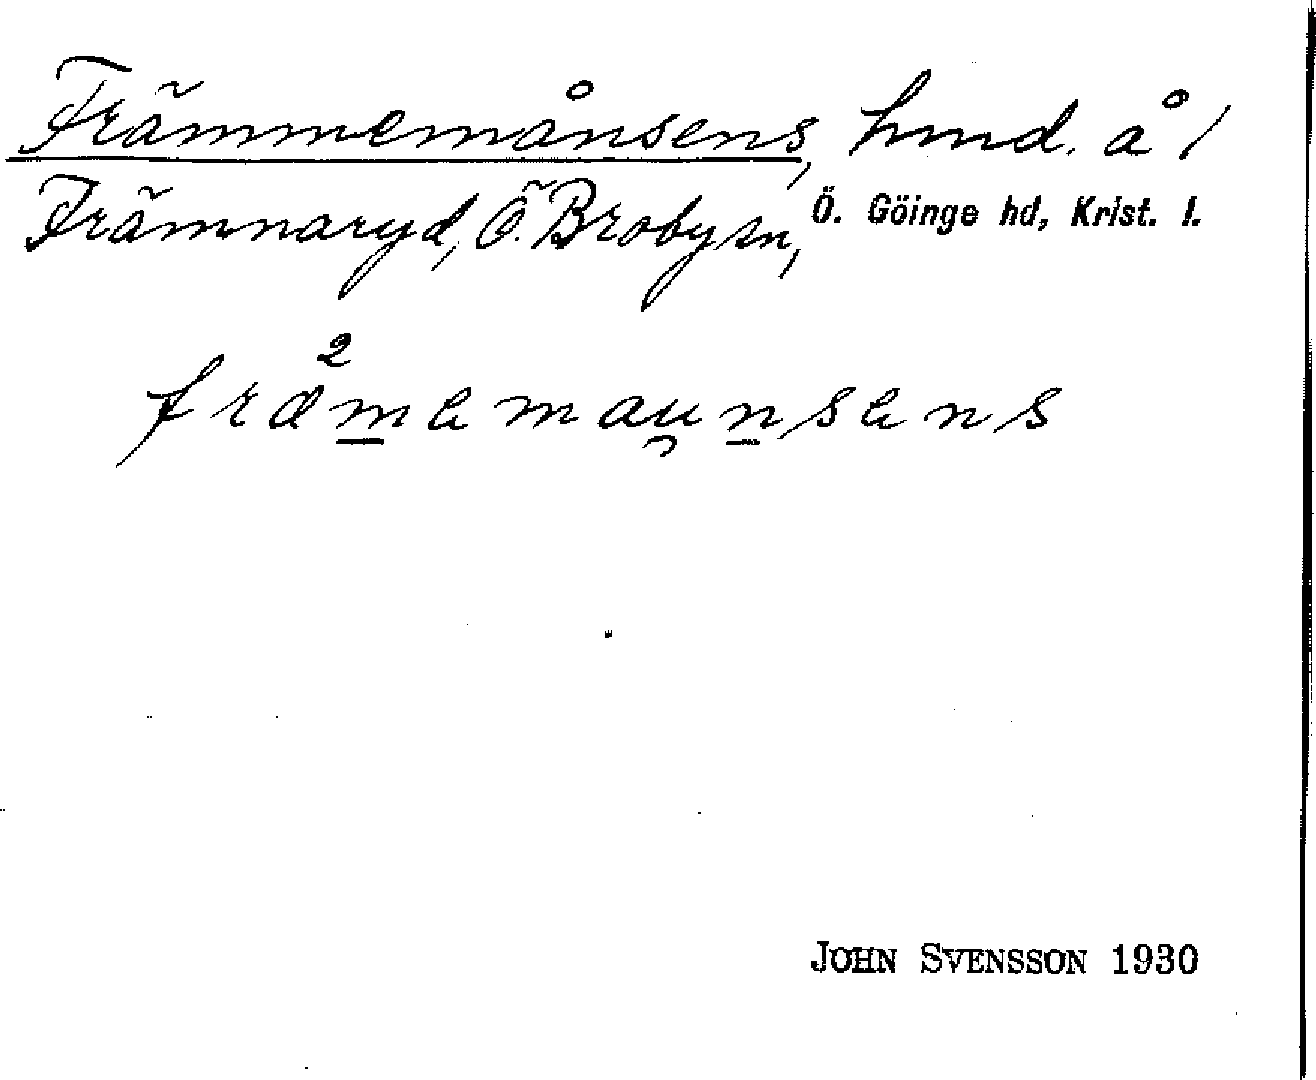 Främmemånsens, hmd. å /
Främnaryd, Ö. Broby sn, Ö. Göinge hd, Krist. l.
främemaunsens
JOHN SVENSSON 1930